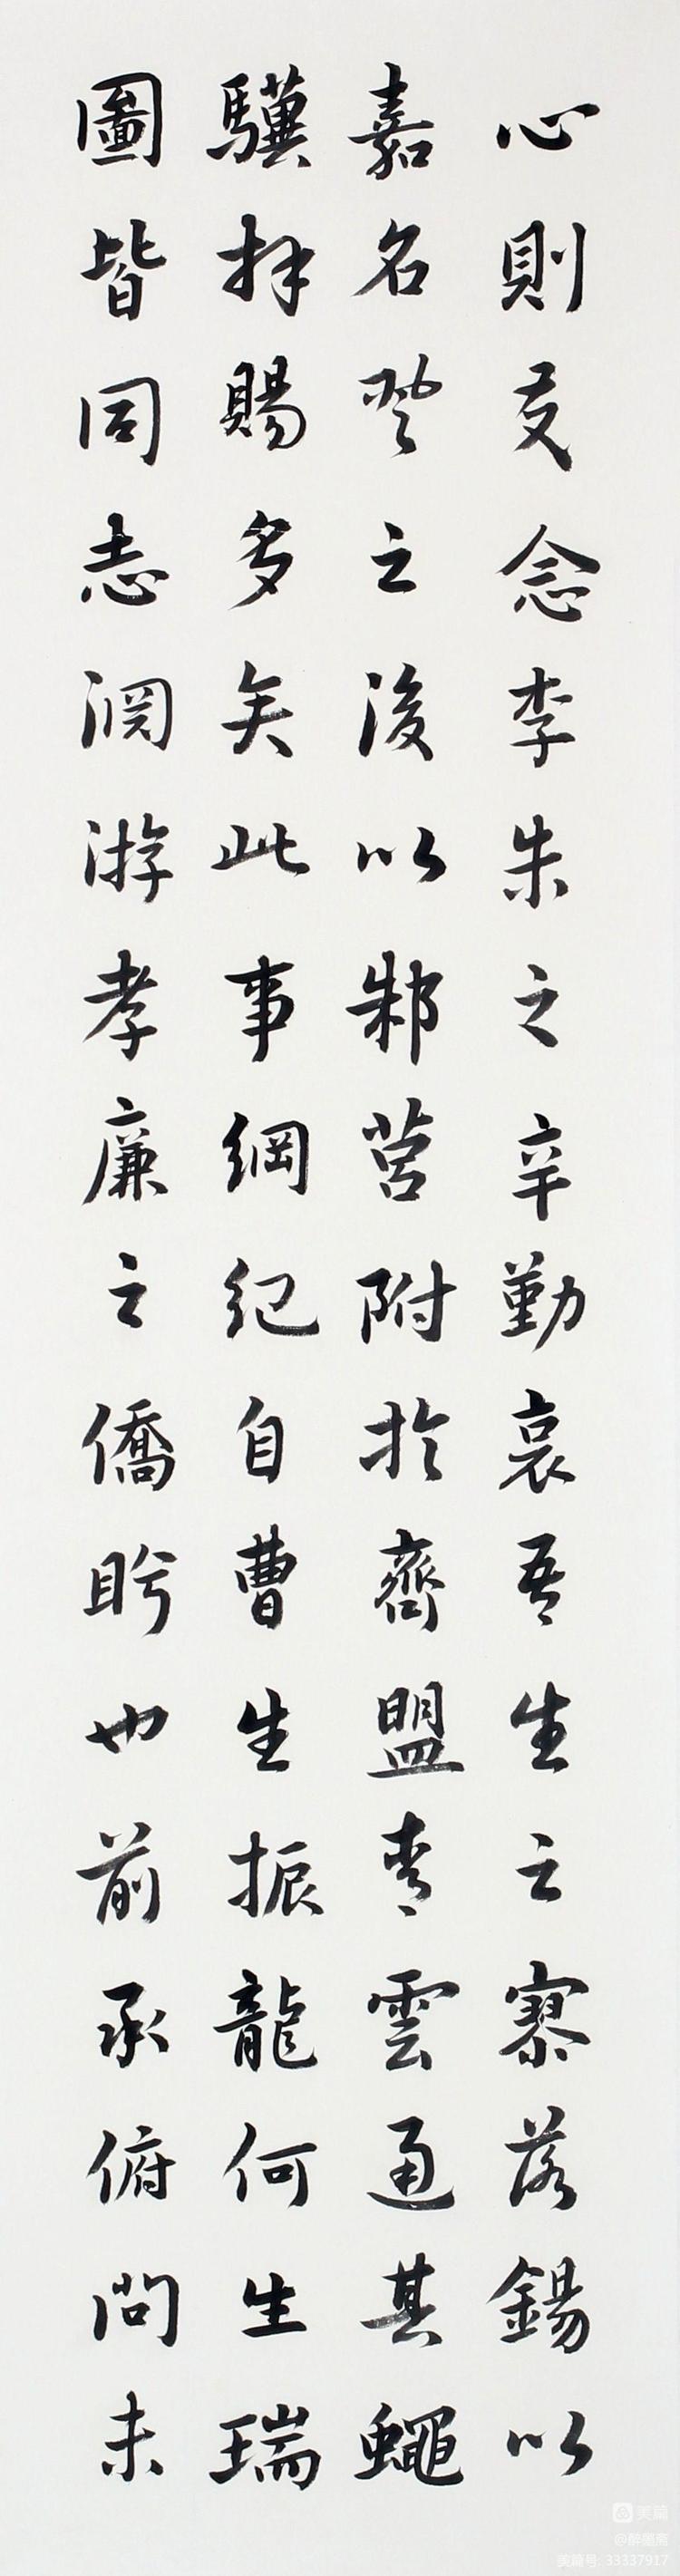 心則友念李朱之辛勤哀吾生之寥落錫以
嘉名之後以邾莒附於齊盟青雲通其蠅
驥拜賜多矣此事綱紀自曹生振龍何生瑞
圖皆同志游孝廉之僑肸也前承俯問未
美篇
@醉墨斋
美篇号: 33337917